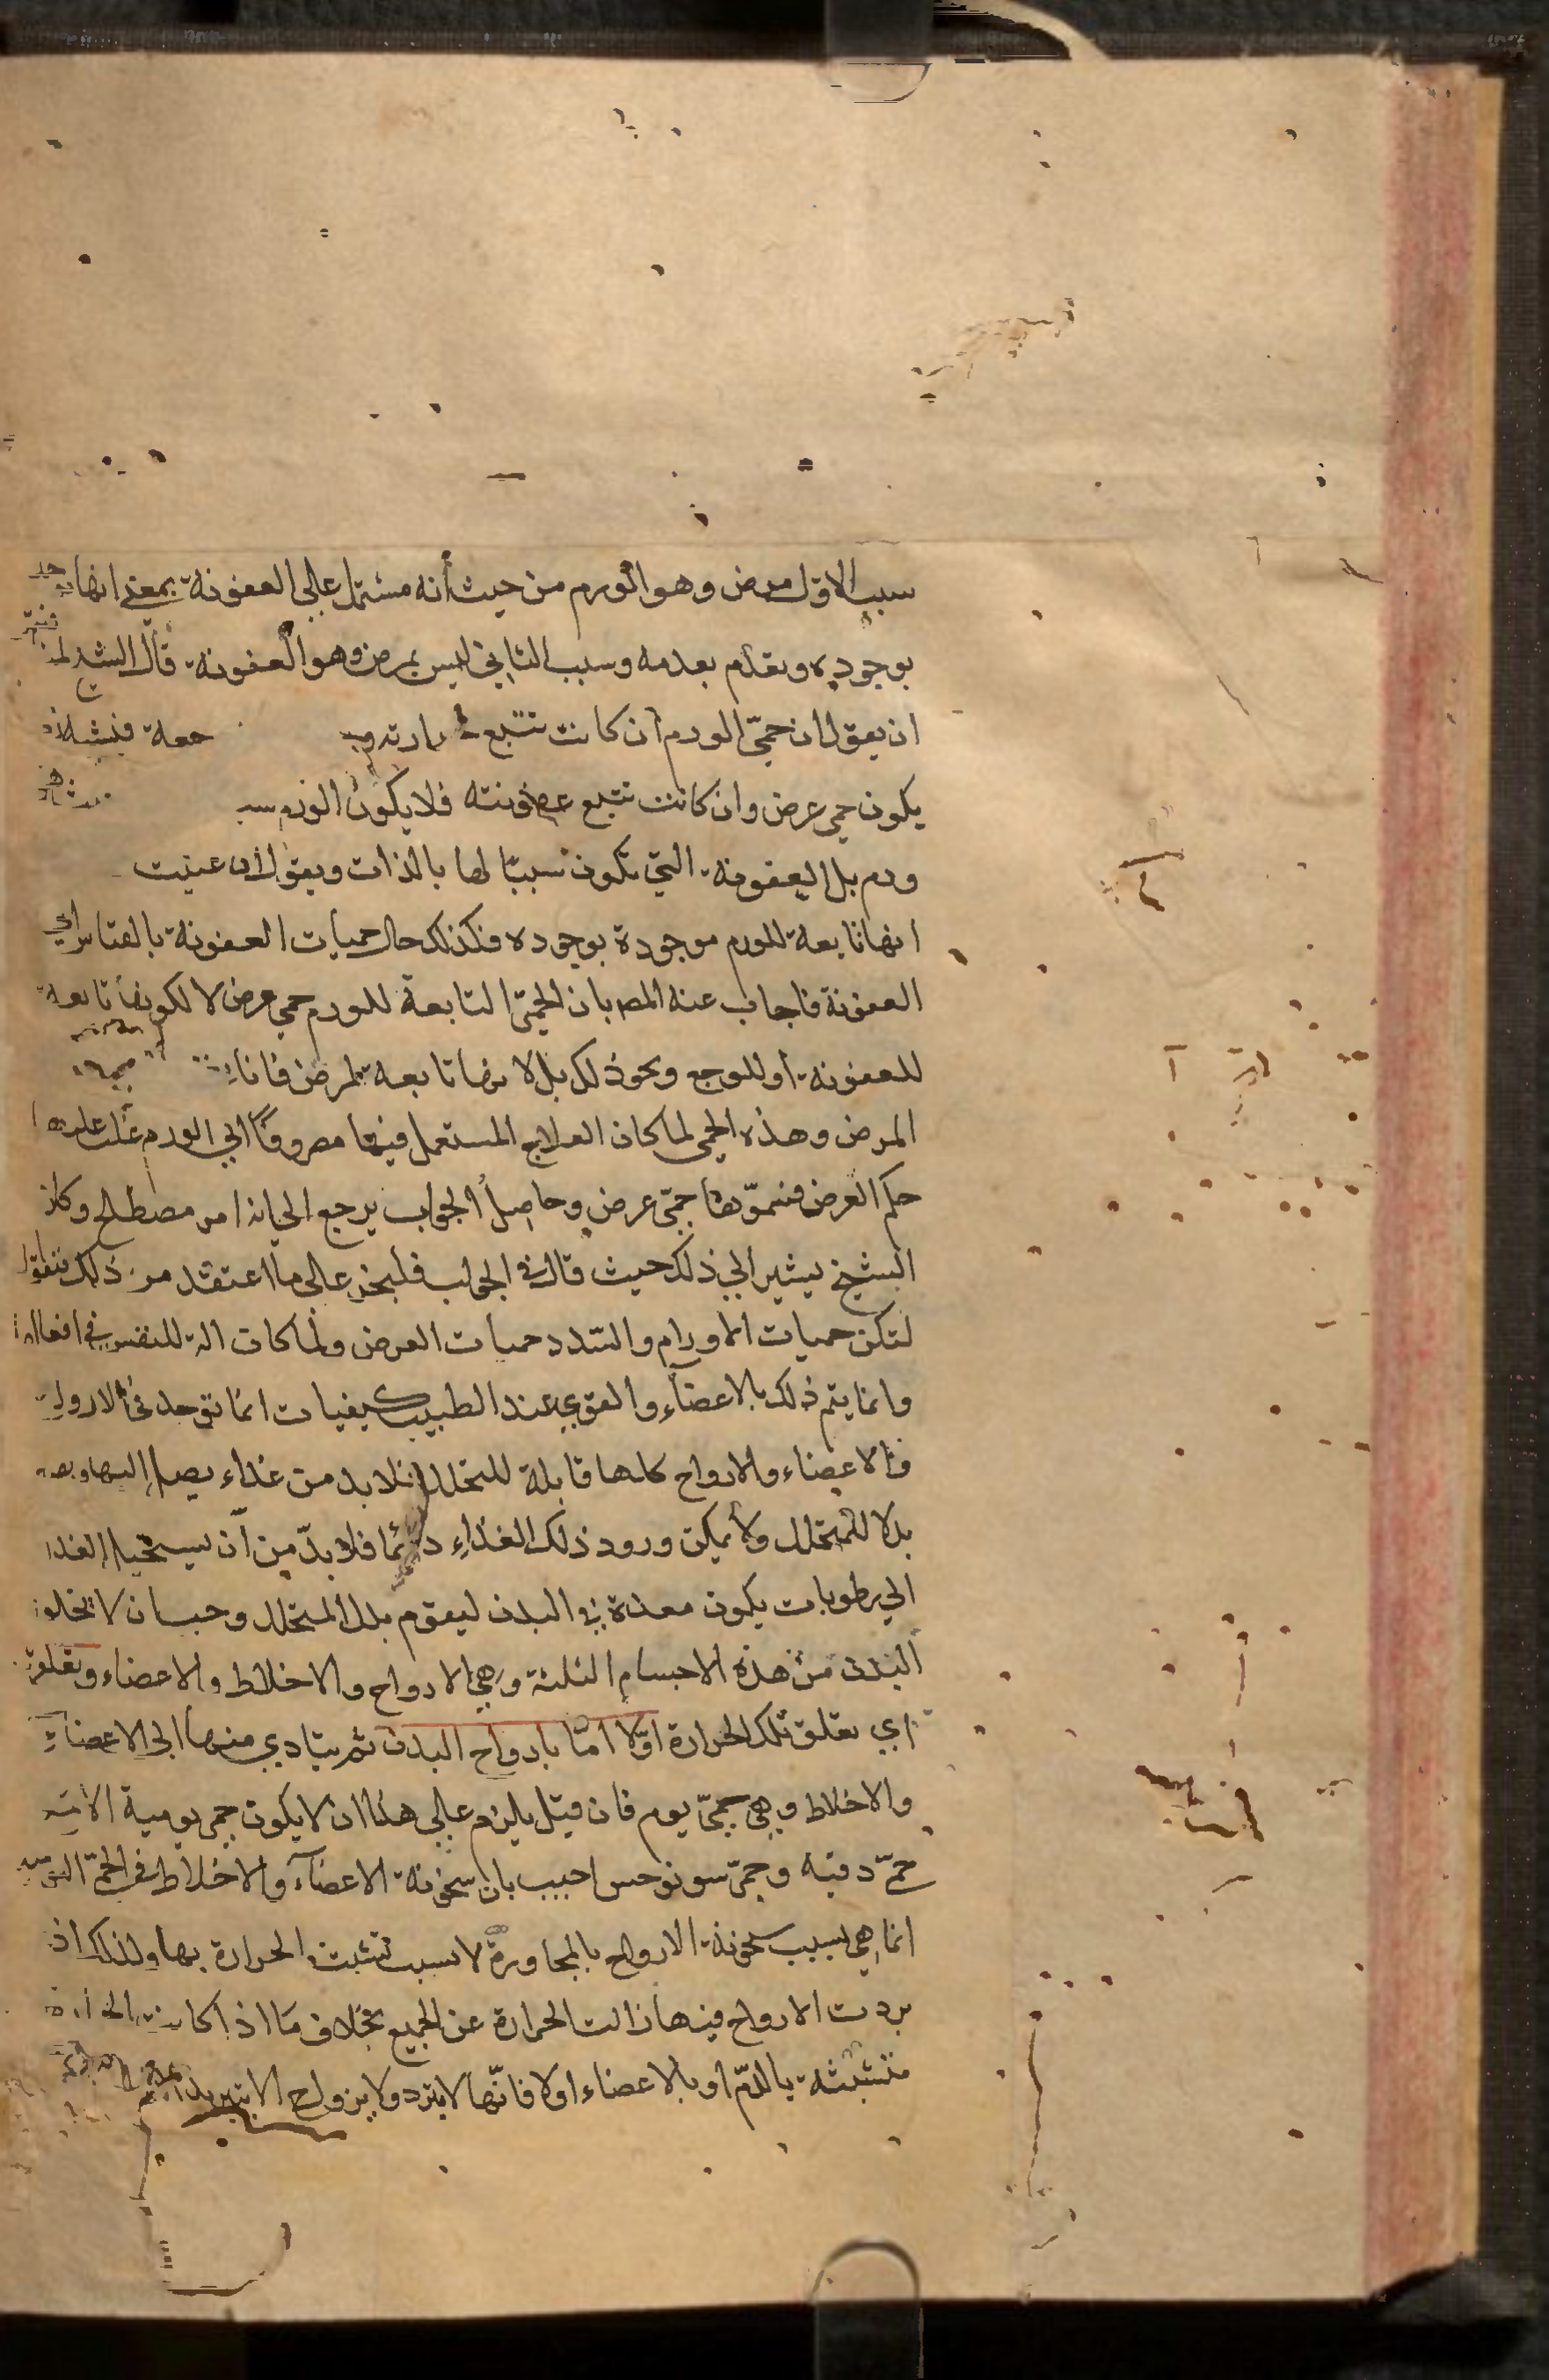 سبب الاول مرض وهو الورم من حيث أنه مشتمل على العفونة بمعنى انها توجد
بوجوده وتقدم بعدمه وسبب الثاني ليس بمرض وهو العفونة قال الشيخ
ان يقول ان حمى الورم ان كانت تتبع
يكون حمى عرض وان كانت تتبع عفونته فلا يكون الورم
ورم بل العفونة التي تكون سببا لها بالذات ويقول ان عنيت
انها تابعة للورم موجودة بوجوده فكذلك حال حميات العفونة بالقياس الى
العفونة فاجاب عنه المصـ بان الحمى التابعة للورم حمى عرض لا لكونها تابعة
للعفونة او للوجع ونحو ذلك بل لانها تابعة لمرض
المرض وهذه الحمى لما كان العلاج المستعمل فيها مصروفا الى الورم غلب عليها
حكم العرض فسموها حمى عرض وحاصل الجواب يرجع الى انه امر مصطلح وكان
الشيخ يشير الى ذلك حيث قال في الجواب فليجز على ما اعتقد من ذلك فنقول
لتكن حميات الاورام والسدد حميات العرض ولما كان الة للنفس في افعالها
وانما يتم ذلك بالاعضاء والقوى عند الطبيب كيفيات انما توجد في الارواح
والاعضاء والارواح كلها قابلة للتحلل فلا بد من غذاء يصل اليها
بدلا للمتحلل ولا يمكن ورود ذلك الغذاء دائما فلا بد من أن يستحيل الغذا
الى رطوبات يكون معدة في البدن ليقوم بدل المتحلل وجب ان لا يخلو
البدن من هذه الاجسام الثلثة وهي الارواح والاخلاط والاعضاء وتعلق
اي تعلق تلك الحرارة اولا اما بارواح البدن ثم يتادي منها الى الاعضاء
والاخلاط وهي حمى يوم فان قيل يلزم على هذا ان لا يكون حمى يومية الا
حمى دقيه وحمى سونوخس اجيب بان سخونة الاعضاء والاخلاط في الحمى اليومية
انما هي بسبب سخونة الارواح بالمجاورة لا بسبب تشبث الحرارة بها ولذلك اذ
بردت الارواح فيها زالت الحرارة عن الجميع بخلاف ما اذا كانت الحرارة
متشبثة بالدم او بالاعضاء اولا فانها لا يبرد ولا يزول الا بتبريد